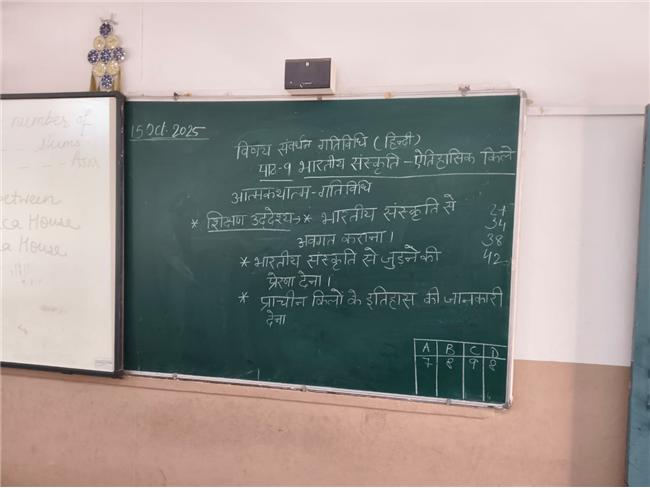 number of
Nums
Ader
between
ca House
ca House
15 Oct. 2025
विषय संवर्धन गतिविधि (हिन्दी)
पाठ-१ भारतीय संस्कृति - ऐतिहासिक किले
आत्मकथात्म-गतिविधि
* शिक्षण उददेश्य→* भारतीय संस्कृति से
अवगत कराना।
* भारतीय संस्कृति से जुडने की
प्रेरणा देना।
* प्राचीन किलो के इतिहास की जानकारी
देना
27
34
38
42
A B C D
7 8 9 8